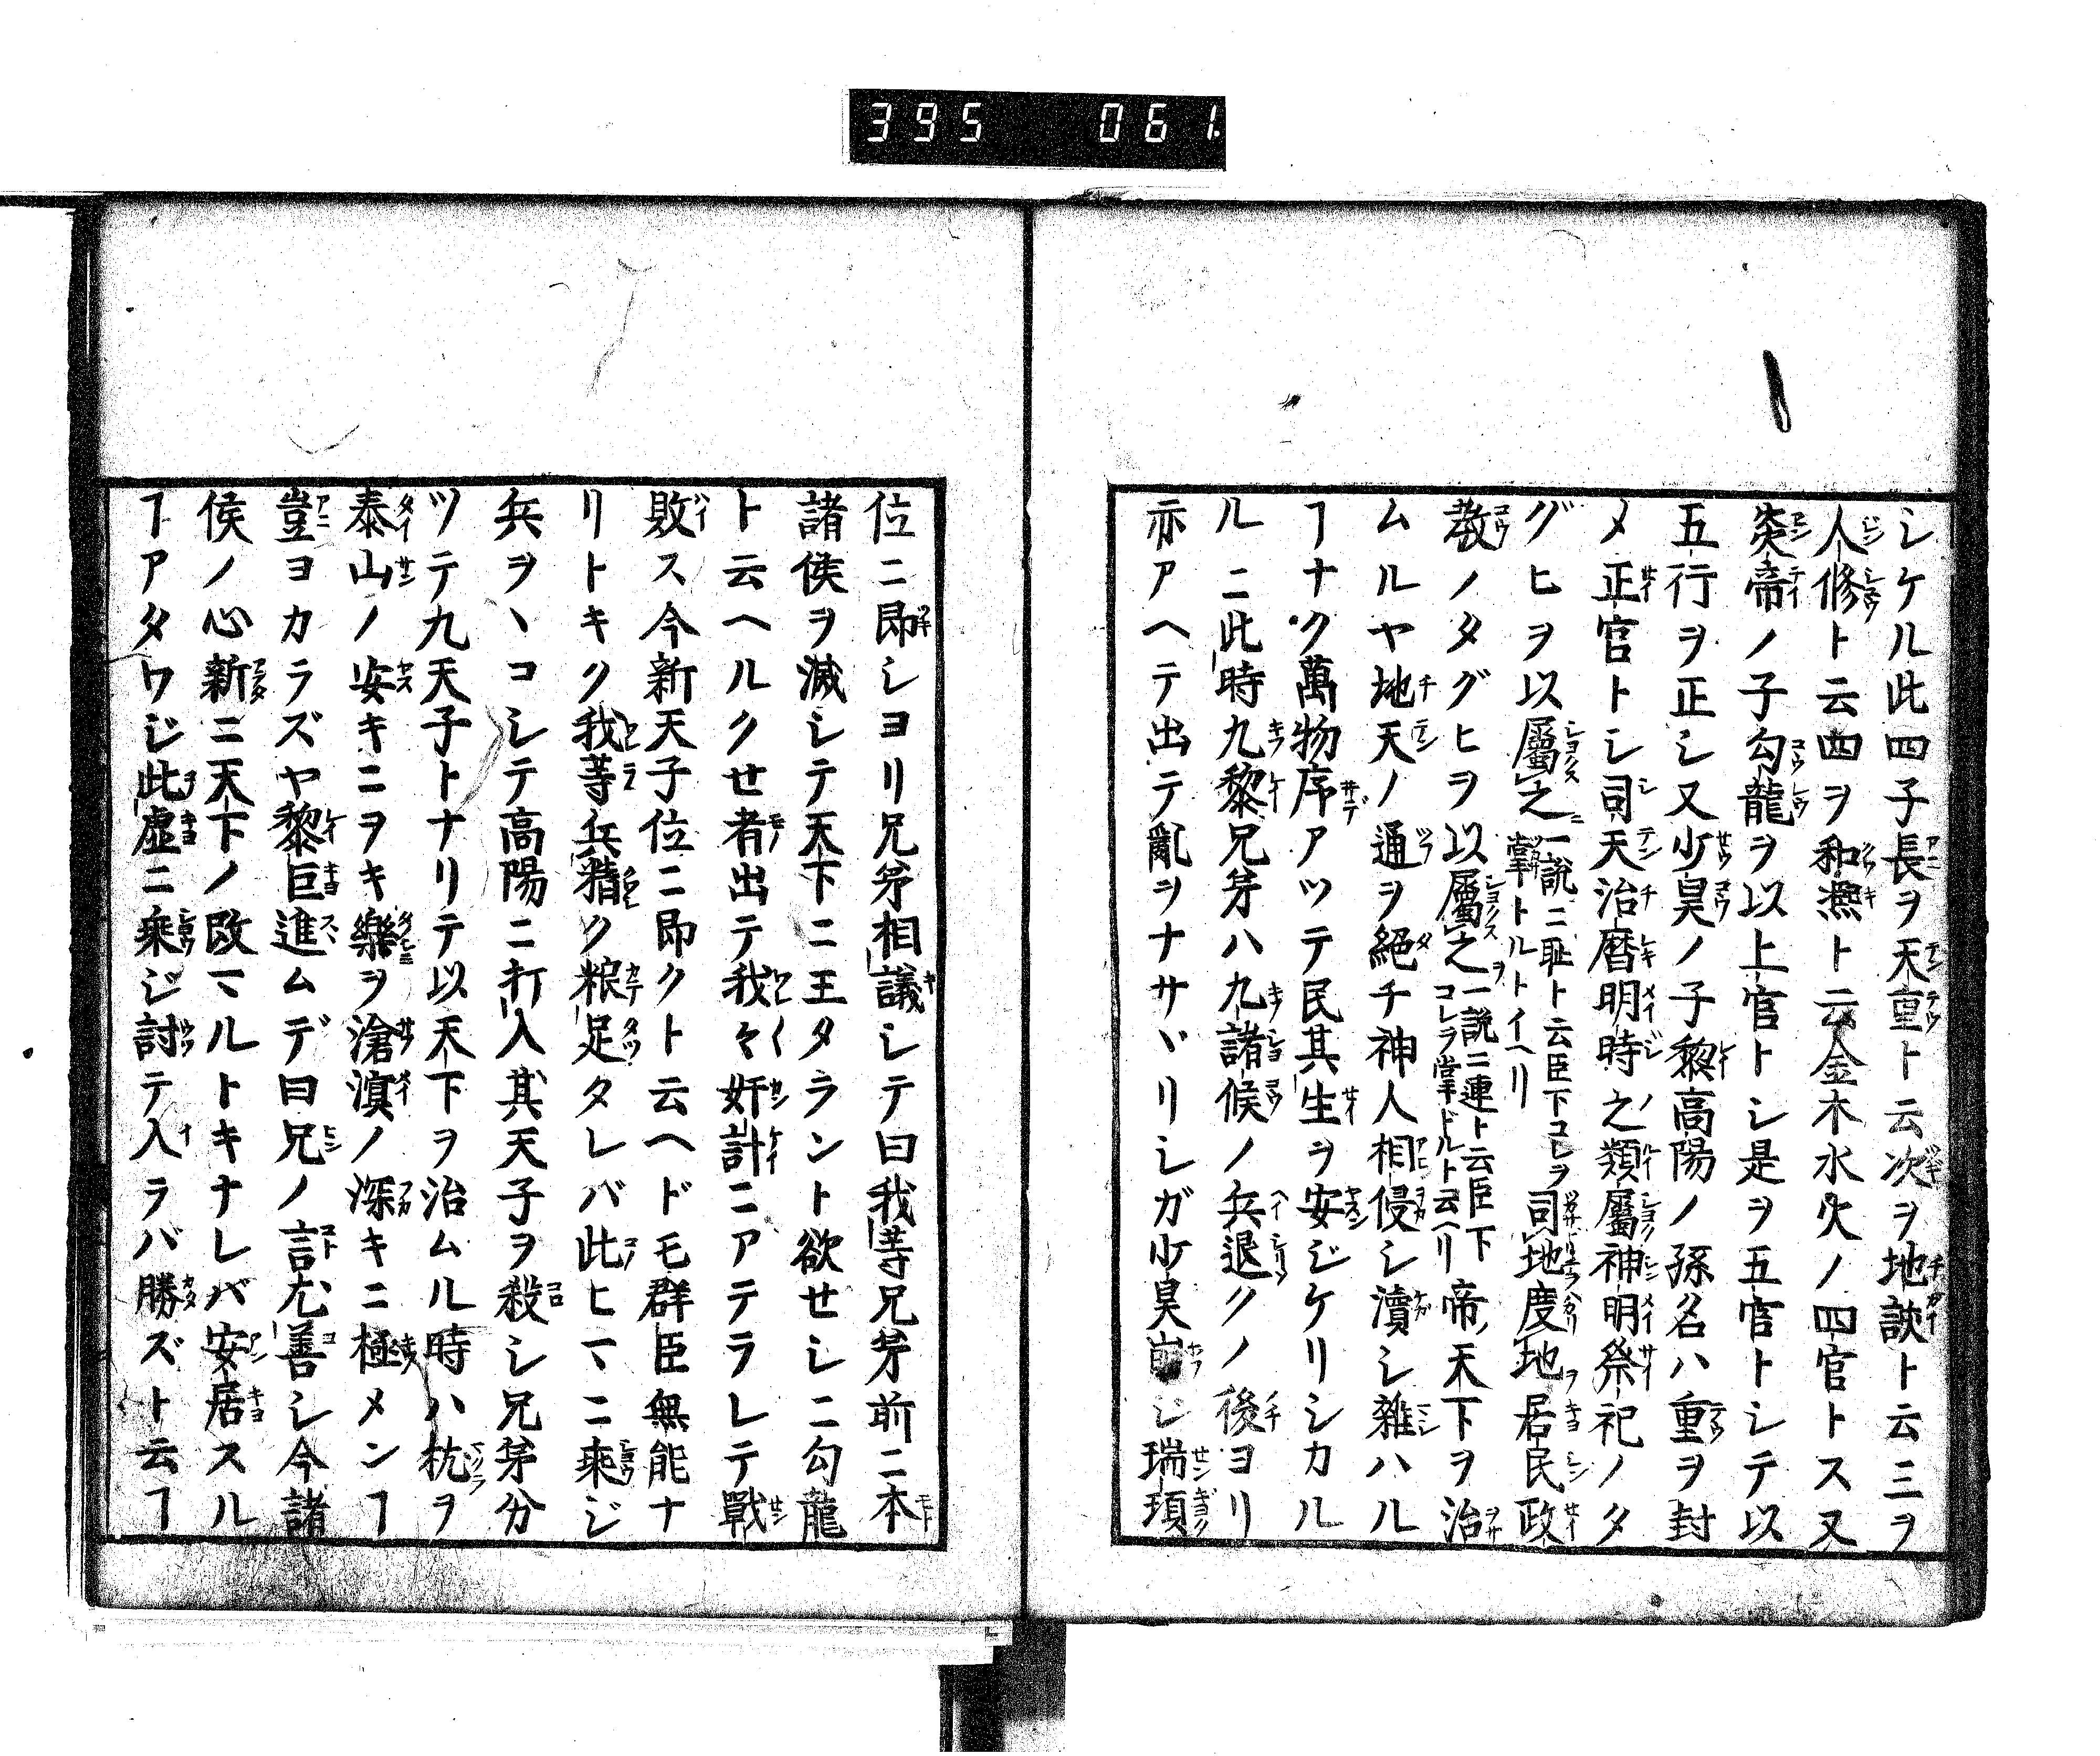 395 061
シケル此四子長ヲ天重ト云次ヲ地詼ト云三ヲ
人修ト云四ヲ和凞ト云金木水火ノ四官トス又
炎帝ノ子勾龍ヲ以上官トシ是ヲ五官トシテ以
五行ヲ正シ又少昊ノ子黎高陽ノ孫名ハ重ヲ封
メ正官トシ司天治暦明時之類屬神明祭祀ノタ
グヒヲ以屬之一説ニ耻ト云臣下コレヲ掌トルトイヘリ司地度地居民政
教ノタグヒヲ以屬之一説ニ連ト云臣下コレヲ掌ドルト云ヘリ帝天下ヲ治
ムルヤ地天ノ通ヲ絕チ神人相侵シ瀆シ雜ハル
ヿナク萬物序アツテ民其生ヲ安ジケリシカル
ルニ此時九黎兄弟ハ九諸候ノ兵退クノ後ヨリ
亦アヘテ出テ亂ヲナサヾリシガ少昊崩ジ瑞頊
位ニ即シヨリ兄弟相議シテ曰我等兄弟前ニ本
諸侯ヲ滅シテ天下ニ王タラント欲せシニ勾龍
ト云ヘルクせ者出テ我々奸計ニアテラレテ戰
敗ス今新天子位ニ即クト云ヘドモ群臣無能ナ
リトキク我等兵精ク粮足タレバ此ヒマニ乘ジ
兵ヲヽコシテ高陽ニ打入其天子ヲ殺シ兄弟分
ツテ九天子トナリテ以天下ヲ治ムル時ハ枕ヲ
泰山ノ安キニヲキ樂ヲ滄溟ノ深キニ極メンヿ
豈ヨカラズヤ黎巨進ムデ曰兄ノ言尤善シ今諸
侯ノ心新ニ天下ノ改マルトキナレバ安居スル
ヿアタワジ此虛ニ乘ジ討テ入ラバ勝ズト云ヿ